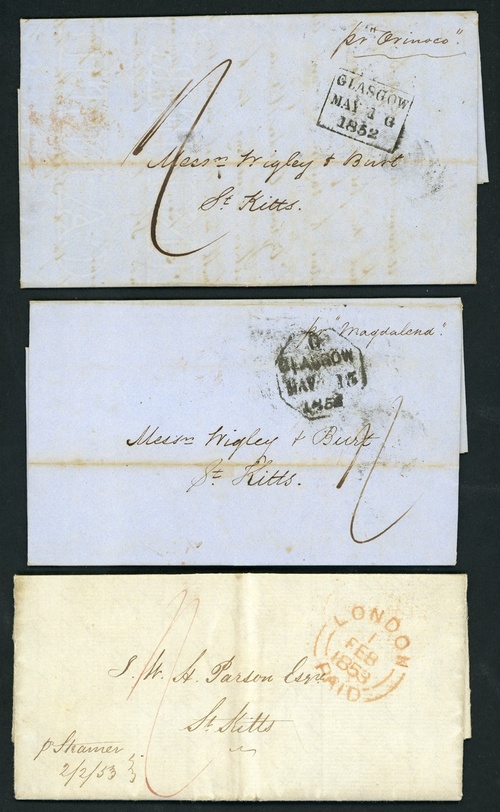 pr "Orinoco".
GLASGOW
MAY 16
1852
Messrs Wigley & Burt
St. Kitts.
pr "Magdalena".
GLASGOW
MAY 15
Messrs Wigley & Burt
St. Kitts.
LONDON
1
FEB
1853
PAID
W. A. Parson Esqre
St Kitts
p Steamer
2/2/53